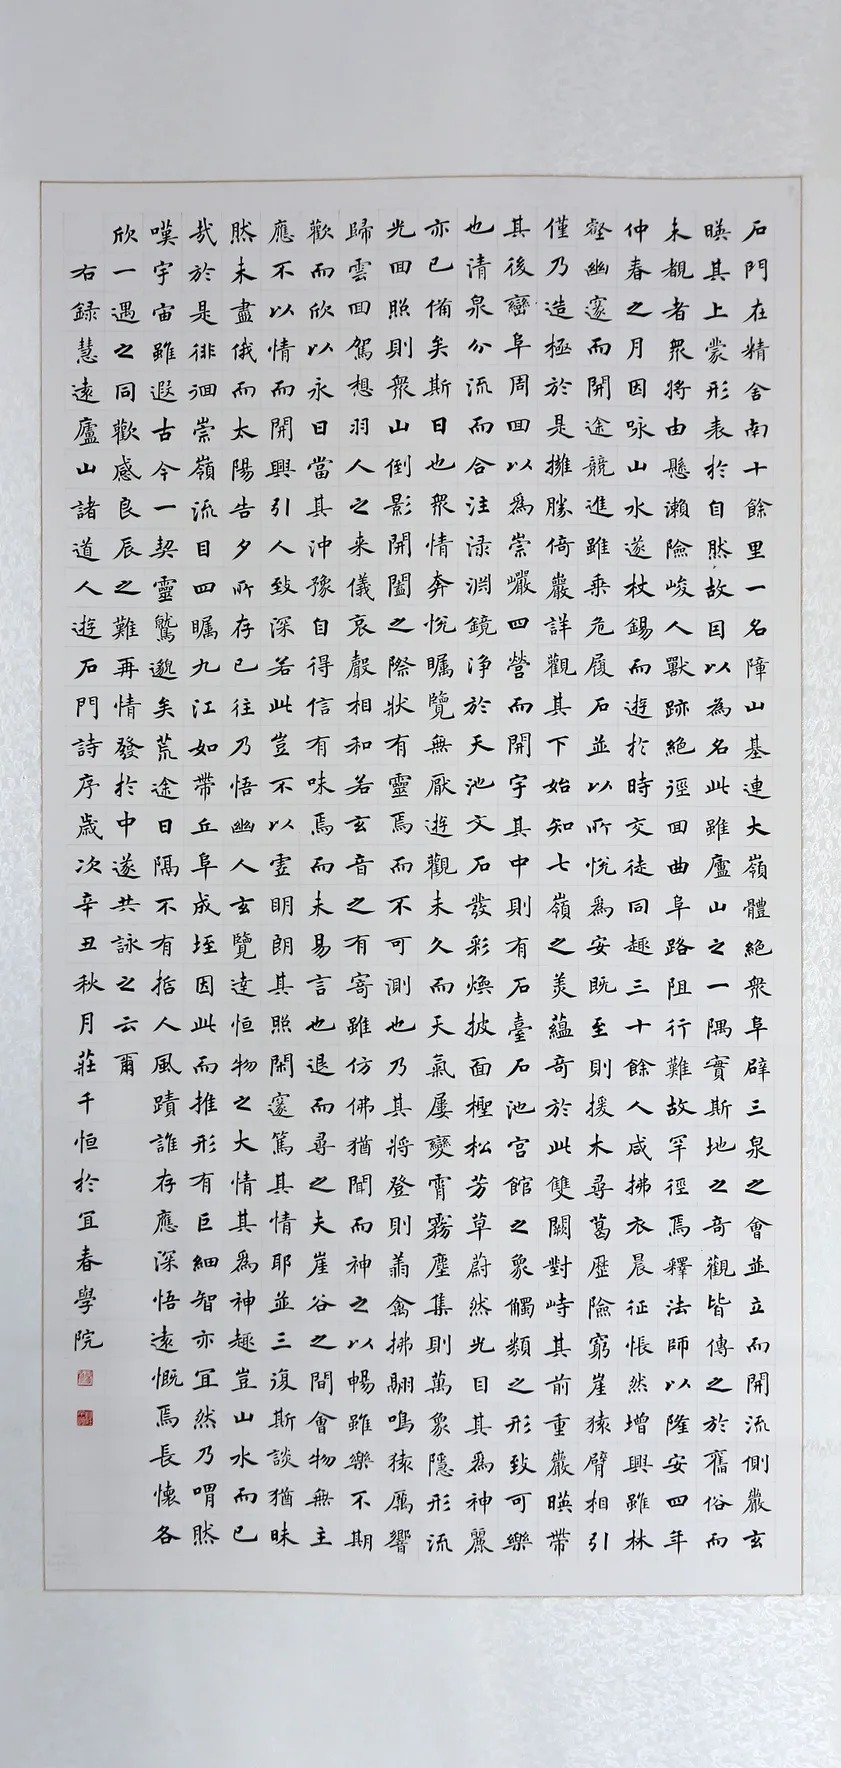 石門在精舍南十餘里一名障山基連大嶺體絕衆阜闢三泉之會並立而開流側巖玄
暎其上蒙形表於自然故因以為名此雖廬山之一隅實斯地之奇觀皆傳之於舊俗而
未覩者衆將由懸瀨險峻人獸跡絕徑回曲阜路阻行難故罕徑焉釋法師以隆安四年
仲春之月因咏山水遂杖錫而遊於時交徒同趣三十餘人咸拂衣晨征悵然增興雖林
壑幽邃而開途競進雖乘危履石並以所悅為安既至則援木尋葛歷險窮崖猿臂相引
僅乃造極於是擁勝倚巖詳觀其下始知七嶺之美蘊奇於此雙闕對峙其前重巖暎帶
其後巒阜周回以為崇巘四營而開宇其中則有石臺石池宮館之象觸類之形致可樂
也清泉分流而合注淥淵鏡淨於天池文石發彩煥披面檉松芳草蔚然光目其為神麗
亦已備矣斯日也衆情奔悅矚覽無厭遊觀未久而天氣屢變霄霧塵集則萬象隱形流
光回照則衆山倒影開闔之際狀有靈焉而不可測也乃其將登則翥禽拂翮鳴猿厲響
歸雲回駕想羽人之来儀哀聲相和若玄音之有寄雖仿佛猶聞而神之以暢雖樂不期
歡而欣以永日當其沖豫自得信有味焉而未易言也退而尋之夫崖谷之間會物無主
應不以情而開興引人致深若此豈不以虛明朗其照閑邃篤其情耶並三復斯談猶昧
然未盡俄而太陽告夕所存已往乃悟幽人玄覽達恒物之大情其為神趣豈山水而已
哉於是徘徊崇嶺流目四矚九江如帶丘阜成垤因此而推形有巨細智亦宜然乃喟然
嘆宇宙雖遐古今一契靈鷲邈矣荒途日隔不有哲人風蹟誰存應深悟遠慨焉長懷各
欣一遇之同歡感良辰之難再情發於中遂共詠之云爾
右録慧遠廬山諸道人遊石門詩序歲次辛丑秋月莊千恒於宜春學院